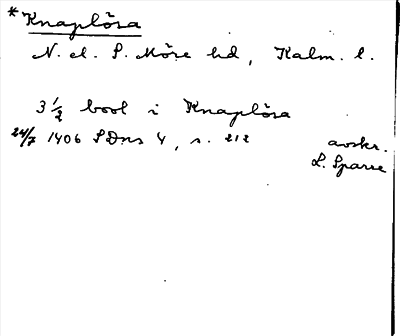 *Knaplösa
N. el. S. Möre hd, Kalm. l.
3 1/2 bool i Knaplösa
24/7 1406 SDns 4, s. 212
avskr.
L. Sparre